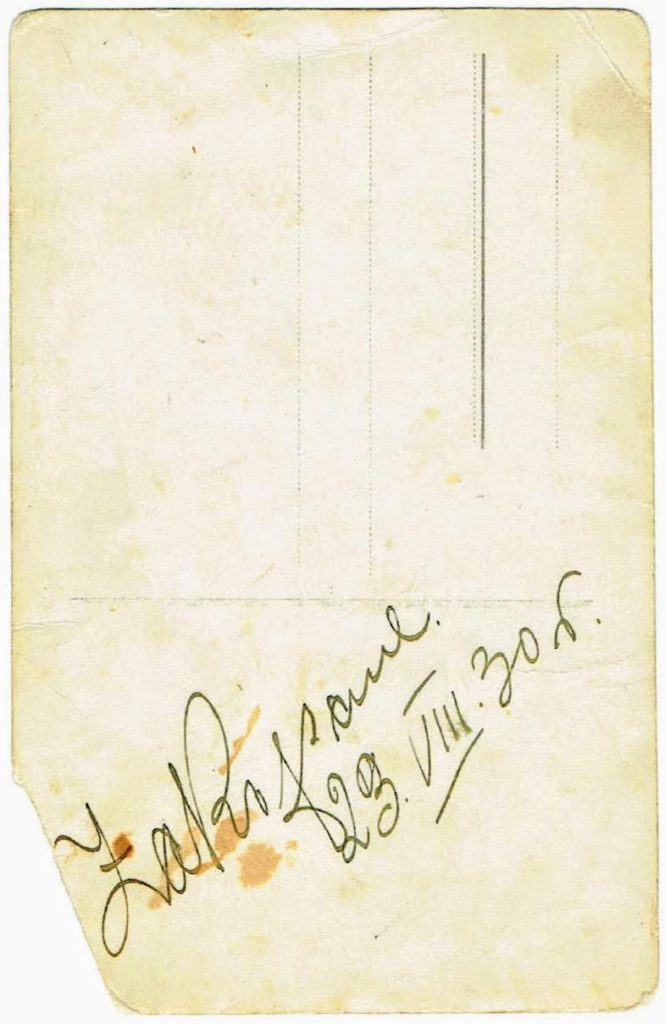 Zakopane.
23.VIII.30 r.